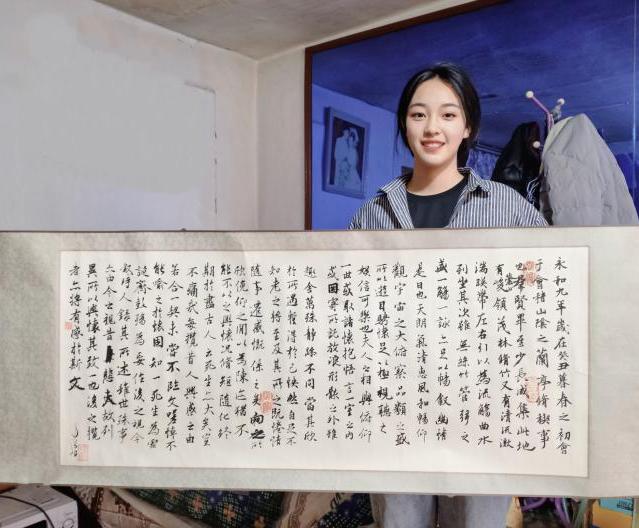 永和九年歲在癸丑暮春之初會
于會稽山陰之蘭亭脩稧事
也羣賢畢至少長咸集此地
有崇山峻領茂林脩竹又有清流激
湍暎帶左右引以為流觴曲水
列坐其次雖無絲竹管弦之
盛一觴一詠亦足以暢敘幽情
是日也天朗氣清惠風和暢仰
觀宇宙之大俯察品類之盛
所以遊目騁懷足以極視聽之
娛信可樂也夫人之相與俯仰
一世或取諸懷抱悟言一室之內
或因寄所託放浪形骸之外雖
趣舍萬殊靜躁不同當其欣
於所遇暫得於己怏然自足不
知老之將至及其所之既惓情
隨事遷感慨係之矣向之所
欣俛仰之閒以為陳迹猶不
能不以之興懷況脩短隨化終
期於盡古人云死生亦大矣豈
不痛哉每攬昔人興感之由
若合一契未嘗不臨文嗟悼不
能喻之於懷固知一死生為虛
誕齊彭殤為妄作後之視今
敘時人錄其所述雖世殊事
亦由今之視昔悲夫故列
異所以興懷其致一也後之攬
者亦將有感於斯文